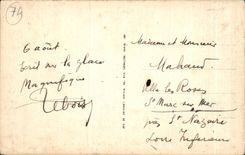 74
6 août
Écrit sur la glace
Magnifique
Lebois
Madame et Monsieur
Mahaud
Villa les Roses
St Marc sur Mer
près St Nazaire
Loire Inférieure